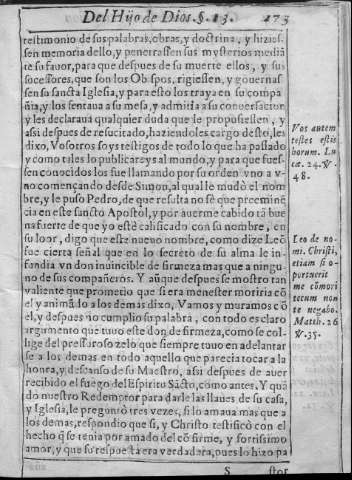 Del Hijo de Dios. §. 13. 173
testimonio de sus palabras, obras, y doctrina, y hizies-
sen memoria dello, y penetrassen sus mysterios mediã
te su fauor, para que despues de su muerte ellos, y sus
sucessores, que son los Obispos, rigiessen, y gouernas
sen su sancta Iglesia, y para esto los traya en su compa
ñia, y los sentaua a su mesa, y admitia a su conuersacion
y les declaraua qualquier duda que le proponessen, y
assi despues de resucitado, haziendoles cargo desto, les
dixo, Vosotros soys testigos de todo lo que ha passado
y como tales lo publicareys al mundo, y para que fues-
sen conocidos los fue llamando por su orden vno a v-
no començando desde Simon, al qual le mudò el nom
bre, y le puso Pedro, de que resulta no sè que preeminẽ
cia en este sancto Apostol, y por auerme cabido tã bue
na fuerte de que yo estè calificado con su nombre, en
su loor, digo que este nueuo nombre, como dize Leõ
fue cierta señal que en lo secreto de su alma le in-
fundia vn don inuincible de firmeza mas que a ningu-
no de sus compañeros. Y aũque despues se mostro tan
valiente que prometio que si era menester moriria cõ
el y animãdo a los demas dixo, Vamos y muramos cõ
el, y despues no cumplio su palabra, con todo es claro
argumento que tuuo este don de firmeza, como se col-
lige del pressuroso zelo que siempre tuuo en adelantar
se a los demas en todo aquello que parecia tocar a la
honra, y descanso de su Maestro, assi despues de auer
recibido el fuego del Espiritu Sãcto, como antes. Y quã
do nuestro Redemptor para darle las llaues de su casa,
y Iglesia, le preguntò tres vezes, si lo amaua mas que a
los demas, respondio que si, y Christo testificò con el
hecho q̃ se tenia por amado del cõ firme, y fortissimo
amor, y que su respuesta era verdadera, pues lo hizo pa
S stor
Vos autem
testes estis
horum. Lu
cæ. 24. &.
48.
Leo de no-
mi. Christi,
etiam si o-
portuerit
me cõmori
tecum non
te negabo.
Matth. 26
&. 35.